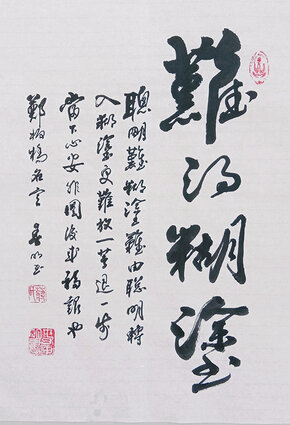 難得糊塗
聰明難糊塗難由聰明轉
入糊塗更難放一著退一步
當下心安非圖後來福報也
鄭板橋名言